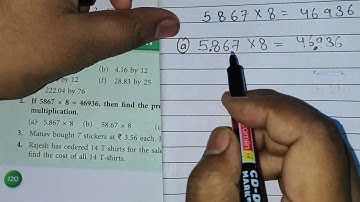 5867 × 8 = 46936
(a) 5.867 × 8 = 46.936
(b) 4.16 by 12
by 12 (f) 28.83 by 25
222.04 by 76
2. If 5867 × 8 = 46936, then find the pro
multiplication.
(a) 5.867 × 8 (b) 58.67 × 8 (c
3. Manav bought 7 stickers at ₹ 3.56 each.
4. Rajesh has ordered 14 T-shirts for the sale
find the cost of all 14 T-shirts.
120
CD-D
MARKE